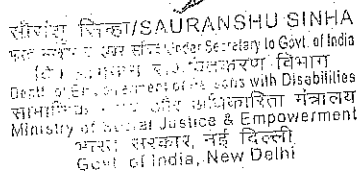 सौरांशु सिन्हा/SAURANSHU SINHA
Under Secretary to Govt. of India
विभाग
Deptt of Empowerment of Persons with Disabilities
सामाजिक और अधिकारिता मंत्रालय
Ministry of Social Justice & Empowerment
भारत सरकार, नई दिल्ली
Govt of India, New Delhi